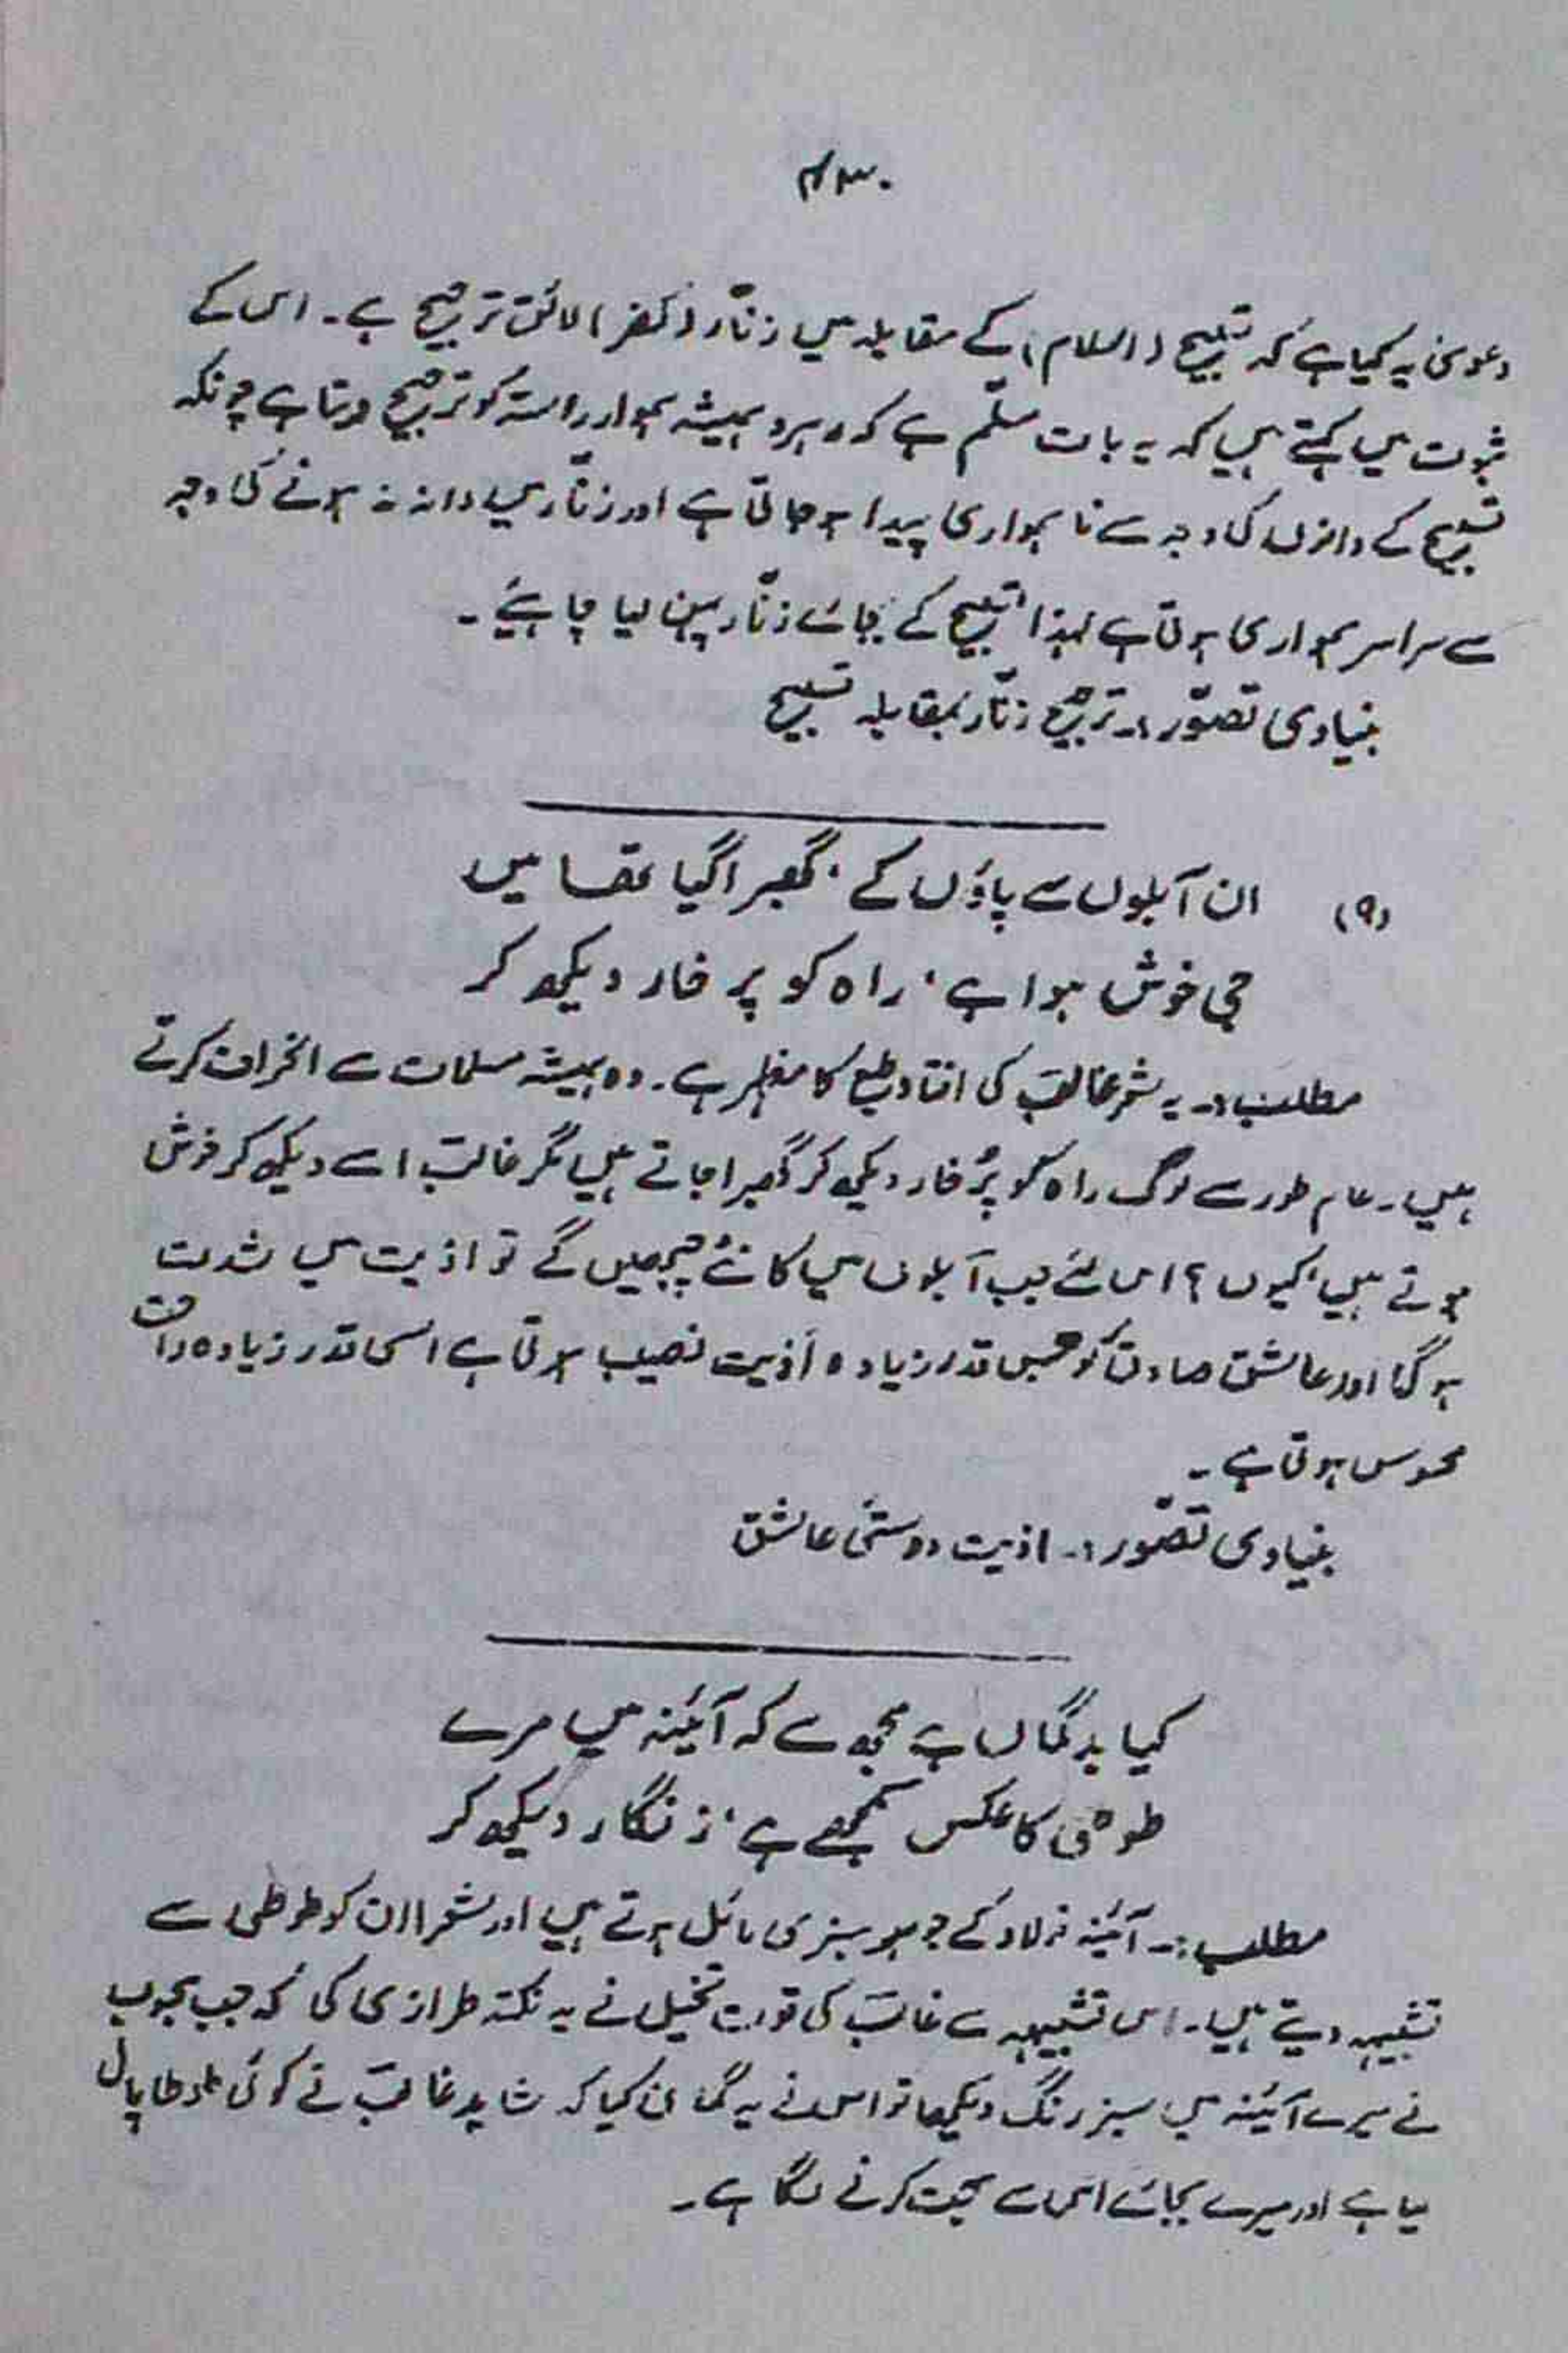 ۴۳۰
دعویٰ یہ کیا ہے کہ تسبیح (اسلام) کے مقابلہ میں زنّار (کفر) لائق ترجیح ہے۔ اس کے
ثبوت میں کہتے ہیں کہ یہ بات مسلّم ہے کہ رہرو ہمیشہ ہموار راستہ کو ترجیح دیتا ہے چونکہ
تسبیح کے دانوں کی وجہ سے ناہمواری پیدا ہو جاتی ہے اور زنّار میں دانہ نہ ہونے کی وجہ
سے سراسر ہمواری ہوتی ہے لہذا تسبیح کے بجائے زنّار پہن لینا چاہئیے۔
بنیادی تصوّر:۔ ترجیح زنّار بمقابلہ تسبیح
(۹) ان آبلوں سے پاؤں کے، گھبرا گیا تھا میں
جی خوش ہوا ہے، راہ کو پر خار دیکھ کر
مطلب:۔ یہ شعر غالبؔ کی افتاد طبع کا مظہر ہے۔ وہ ہمیشہ مسلمات سے انحراف کرتے
ہیں۔ عام طور سے لوگ راہ کو پُر خار دیکھ کر گھبرا جاتے ہیں مگر غالبؔ اسے دیکھ کر خوش
ہوتے ہیں، کیوں؟ اس لئے جب آبلوں میں کانٹے چبھیں گے تو اذیت میں شدت
ہوگی اور عاشق صادق کو جس قدر زیادہ اذیت نصیب ہوتی ہے اسی قدر زیادہ راحت
محسوس ہوتی ہے۔
بنیادی تصوّر:۔ اذیت دوستیٔ عاشق
کیا بدگماں ہے مجھ سے کہ آئینہ میں مرے
طوطی کا عکس سمجھے ہے، زنگار دیکھ کر
مطلب:۔ آئینہ فولاد کے جوہر سبزی مائل ہوتے ہیں اور شعرا ان کو طوطی سے
تشبیہہ دیتے ہیں۔ اس تشبیہہ سے غالبؔ کی قوت تخیل نے یہ نکتہ طرازی کی کہ جب محبوب
نے میرے آئینہ میں سبز رنگ دیکھا تو اس نے یہ گمان کیا کہ شاید غالبؔ نے کوئی طوطا پال
لیا ہے اور میرے بجائے اس سے محبت کرنے لگا ہے۔